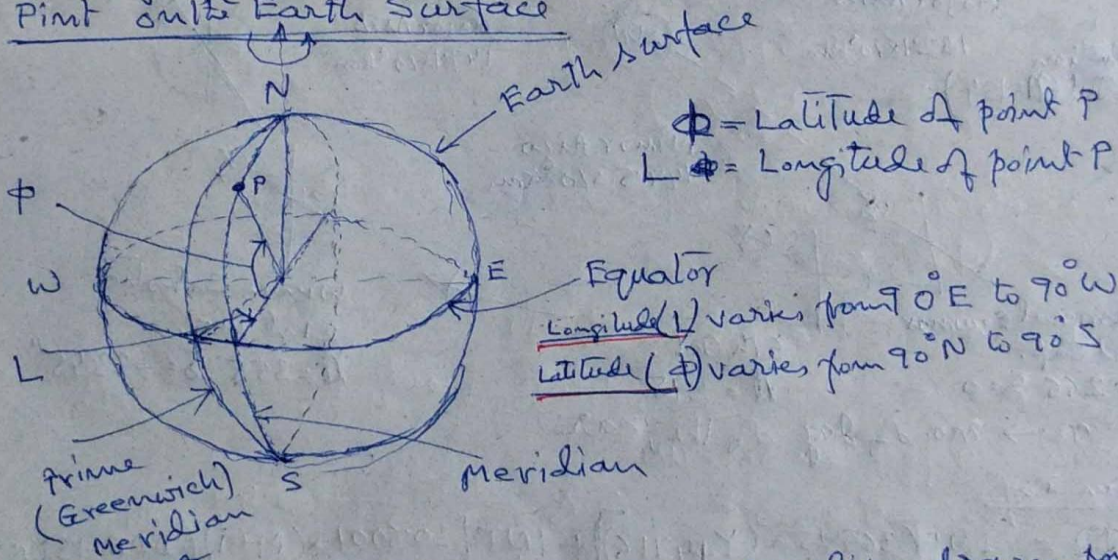 Pint on the Earth Surface
N
Earth surface
ϕ = Latitude of point P
L = Longitude of point P
P
ϕ
W
E
Equator
Longitude(L) varies from 90°E to 90°W
Latitude (ϕ) varies from 90°N to 90°S
L
Prime
(Greenwich)
Meridian
S
Meridian